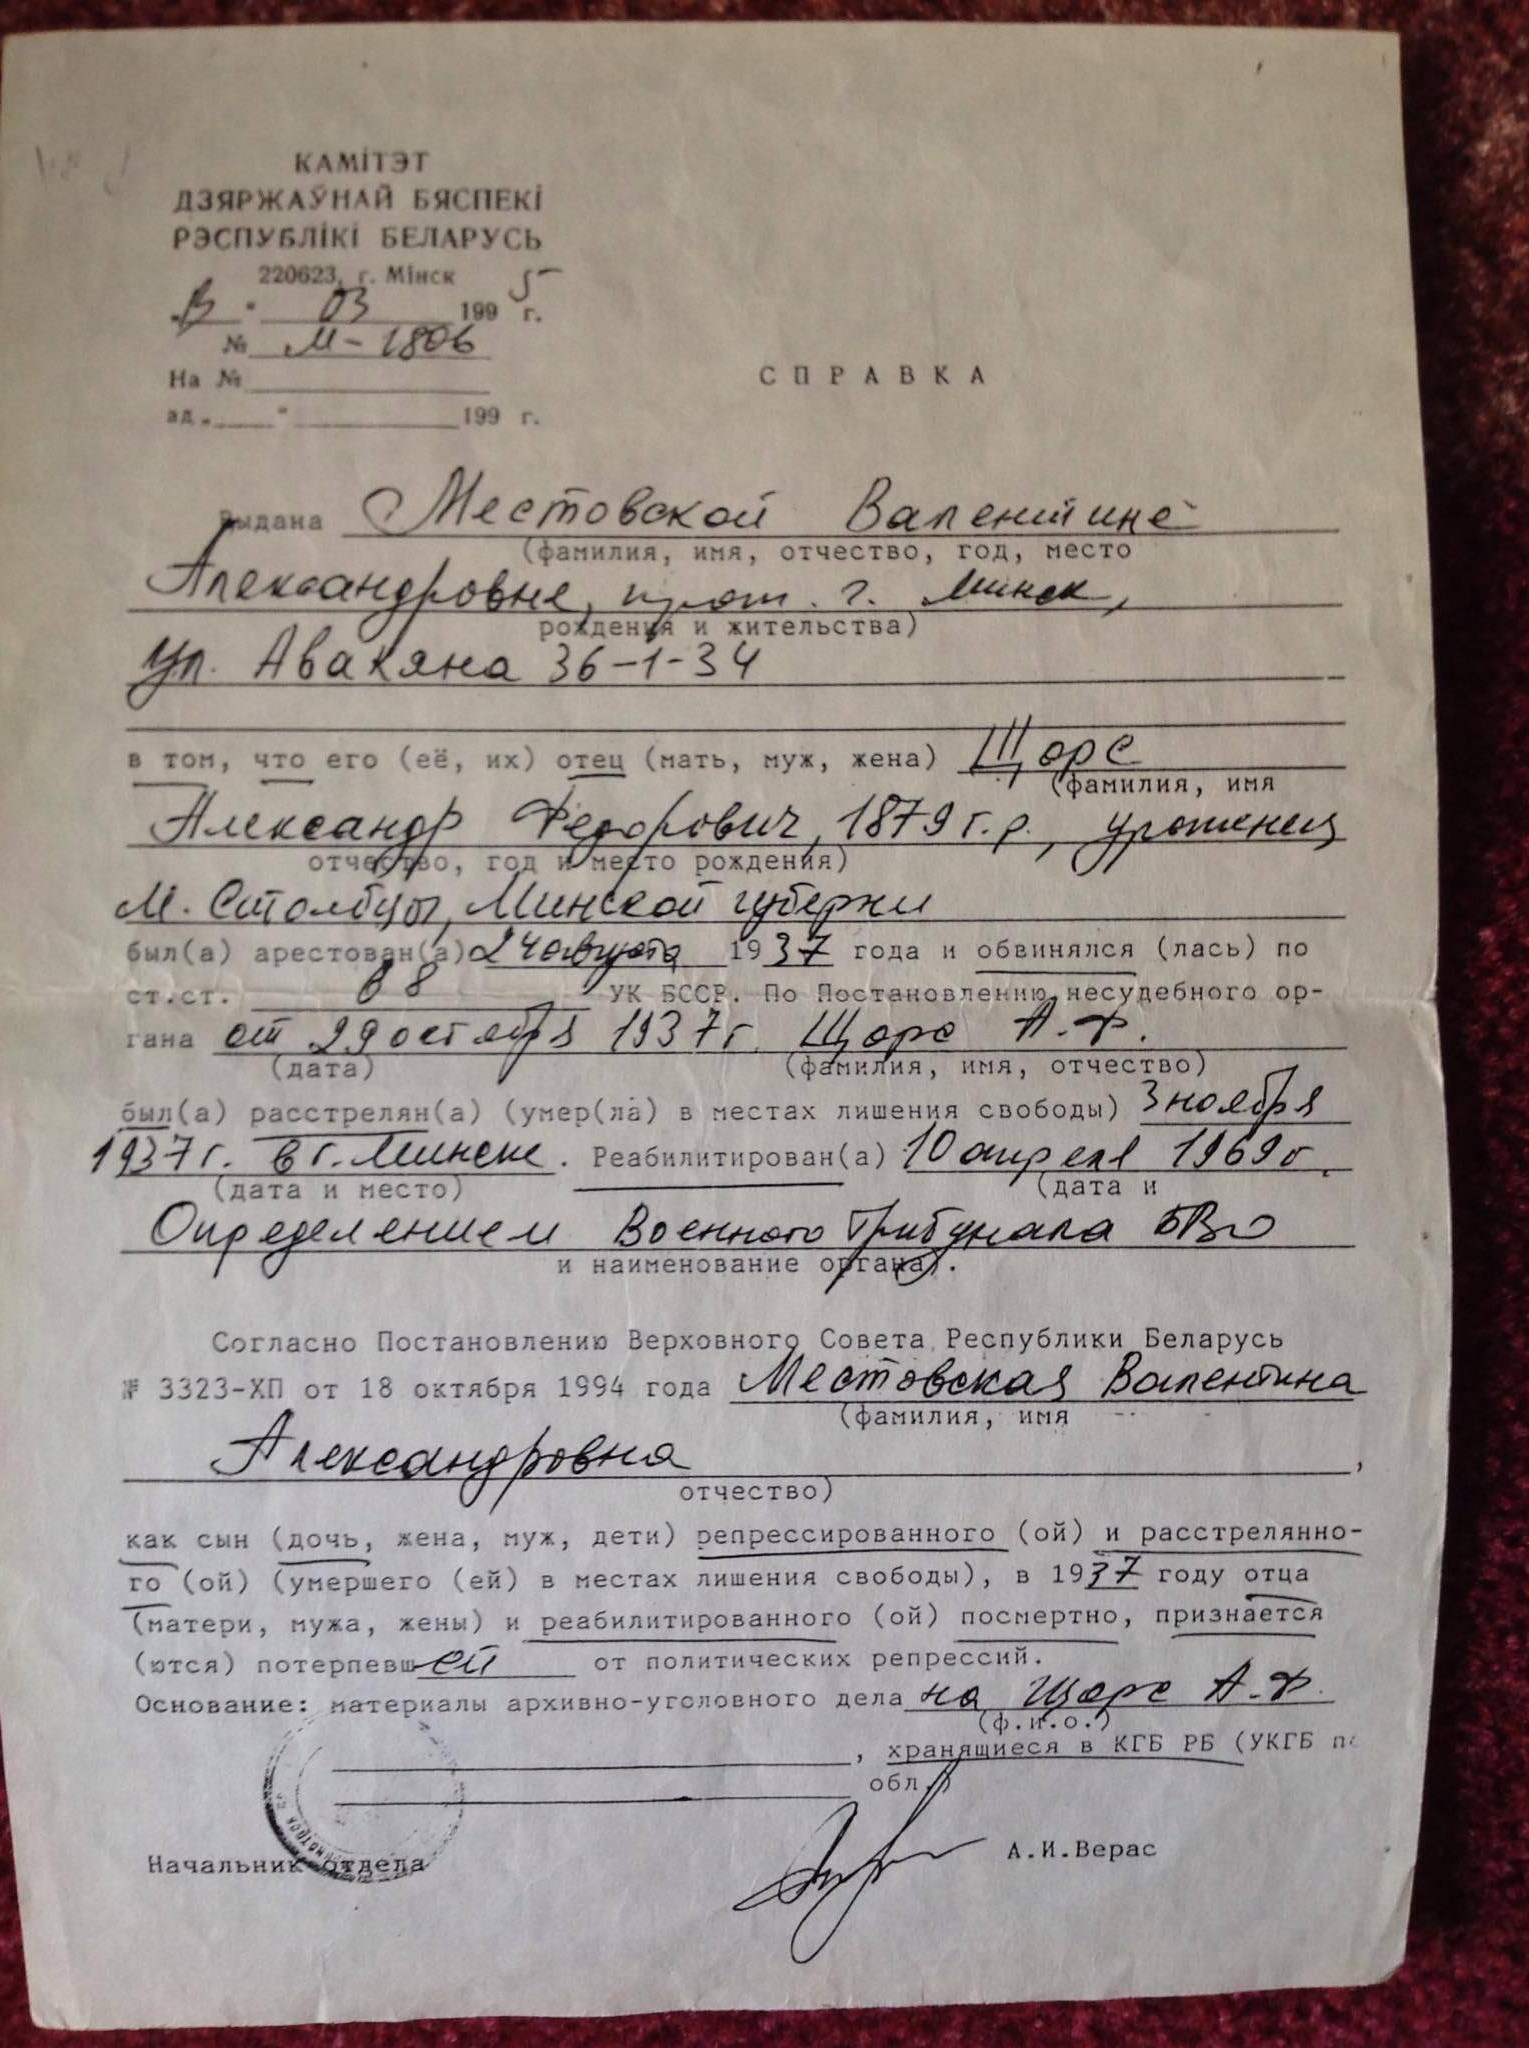 КАМІТЭТ
ДЗЯРЖАЎНАЙ БЯСПЕКІ
РЭСПУБЛІКІ БЕЛАРУСЬ
220623, г. Мінск
" 03 1995 г.
№ М-1806
На №
ад „ " 199 г.
СПРАВКА
Выдана Местовской Валентине
(фамилия, имя, отчество, год, место
Александровне, прож. г. Минск,
рождения и жительства)
ул. Авакяна 36-1-34
в том, что его (её, их) отец (мать, муж, жена) Щорс
(фамилия, имя
Александр Федорович, 1879 г.р., уроженец
отчество, год и место рождения)
м. Столбцы, Минской губернии
был(а) арестован(а) 24 августа 1937 года и обвинялся (лась) по
ст.ст. УК БССР. По Постановлению несудебного ор-
гана от 29 октября 1937 г. Щорс А.Ф.
(дата) (фамилия, имя, отчество)
был(а) расстрелян(а) (умер(ла) в местах лишения свободы) 3 ноября
1937 г. в г. Минске. Реабилитирован(а) 10 апреля 1969 г.
(дата и место) (дата и
Определением Военного Трибунала БВО
и наименование органа).
Согласно Постановлению Верховного Совета Республики Беларусь
№ 3323-ХП от 18 октября 1994 года Местовская Валентина
(фамилия, имя
Александровна ,
отчество)
как сын (дочь, жена, муж, дети) репрессированного (ой) и расстрелянно-
го (ой) (умершего (ей) в местах лишения свободы), в 1937 году отца
(матери, мужа, жены) и реабилитированного (ой) посмертно, признается
(ются) потерпевшей от политических репрессий.
Основание: материалы архивно-уголовного дела на Щорс А.Ф.
(ф.и.о.)
, хранящиеся в КГБ РБ (УКГБ по
обл.)
Начальник отдела А.И.Верас